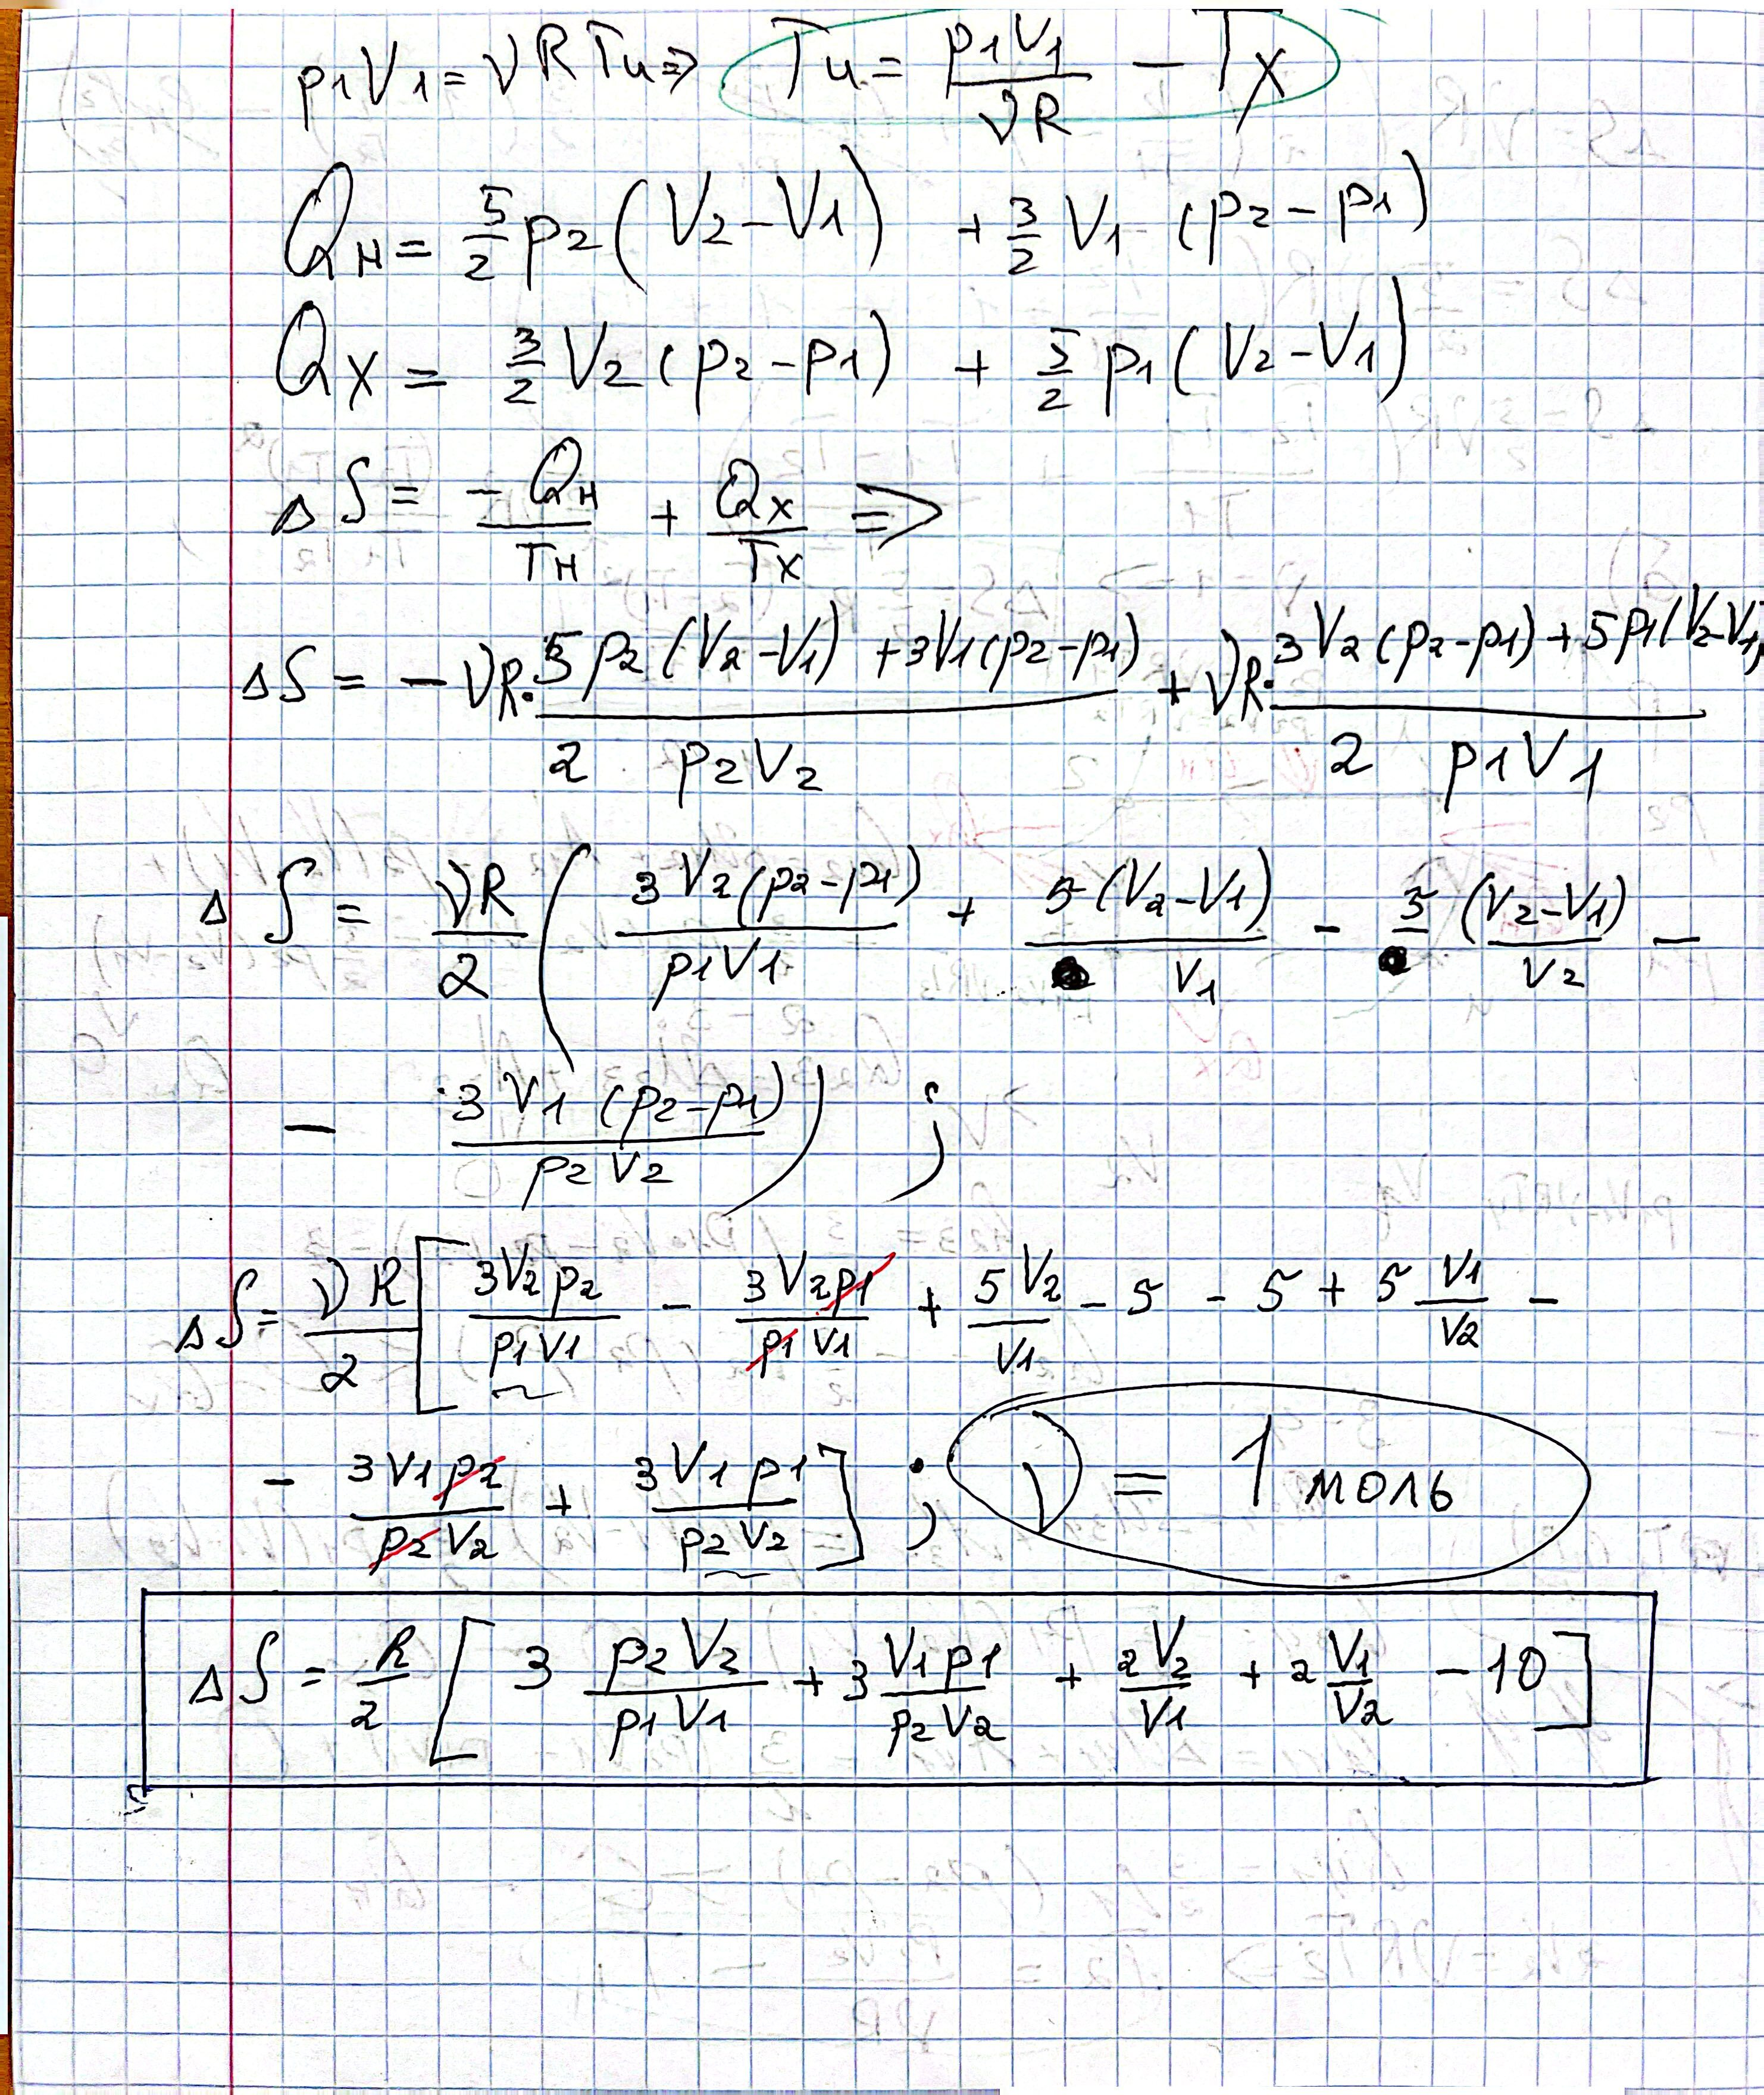 p₁V₁ = νRTч ⇒ Tч = p₁V₁/νR − Tx
Qн = 5/2 p₂(V₂−V₁) + 3/2 V₁ (p₂−p₁)
Qx = 3/2 V₂(p₂−p₁) + 5/2 p₁(V₂−V₁)
ΔS = −Qн/Tн + Qx/Tx ⇒
ΔS = −νR·(5p₂(V₂−V₁) + 3V₁(p₂−p₁))/(2 p₂V₂) + νR·(3V₂(p₂−p₁) + 5p₁(V₂−V₁))/(2 p₁V₁)
ΔS = νR/2 ( 3V₂(p₂−p₁)/(p₁V₁) + 5(V₂−V₁)/V₁ − 5(V₂−V₁)/V₂ −
− 3V₁(p₂−p₁)/(p₂V₂) ) ;
ΔS = νR/2 [ 3V₂p₂/(p₁V₁) − 3V₂p₁/(p₁V₁) + 5V₂/V₁ − 5 − 5 + 5 V₁/V₂ −
− 3V₁p₂/(p₂V₂) + 3V₁p₁/(p₂V₂) ] ; ν = 1 моль
ΔS = R/2 [ 3 p₂V₂/(p₁V₁) + 3 V₁p₁/(p₂V₂) + 2V₂/V₁ + 2 V₁/V₂ − 10 ]